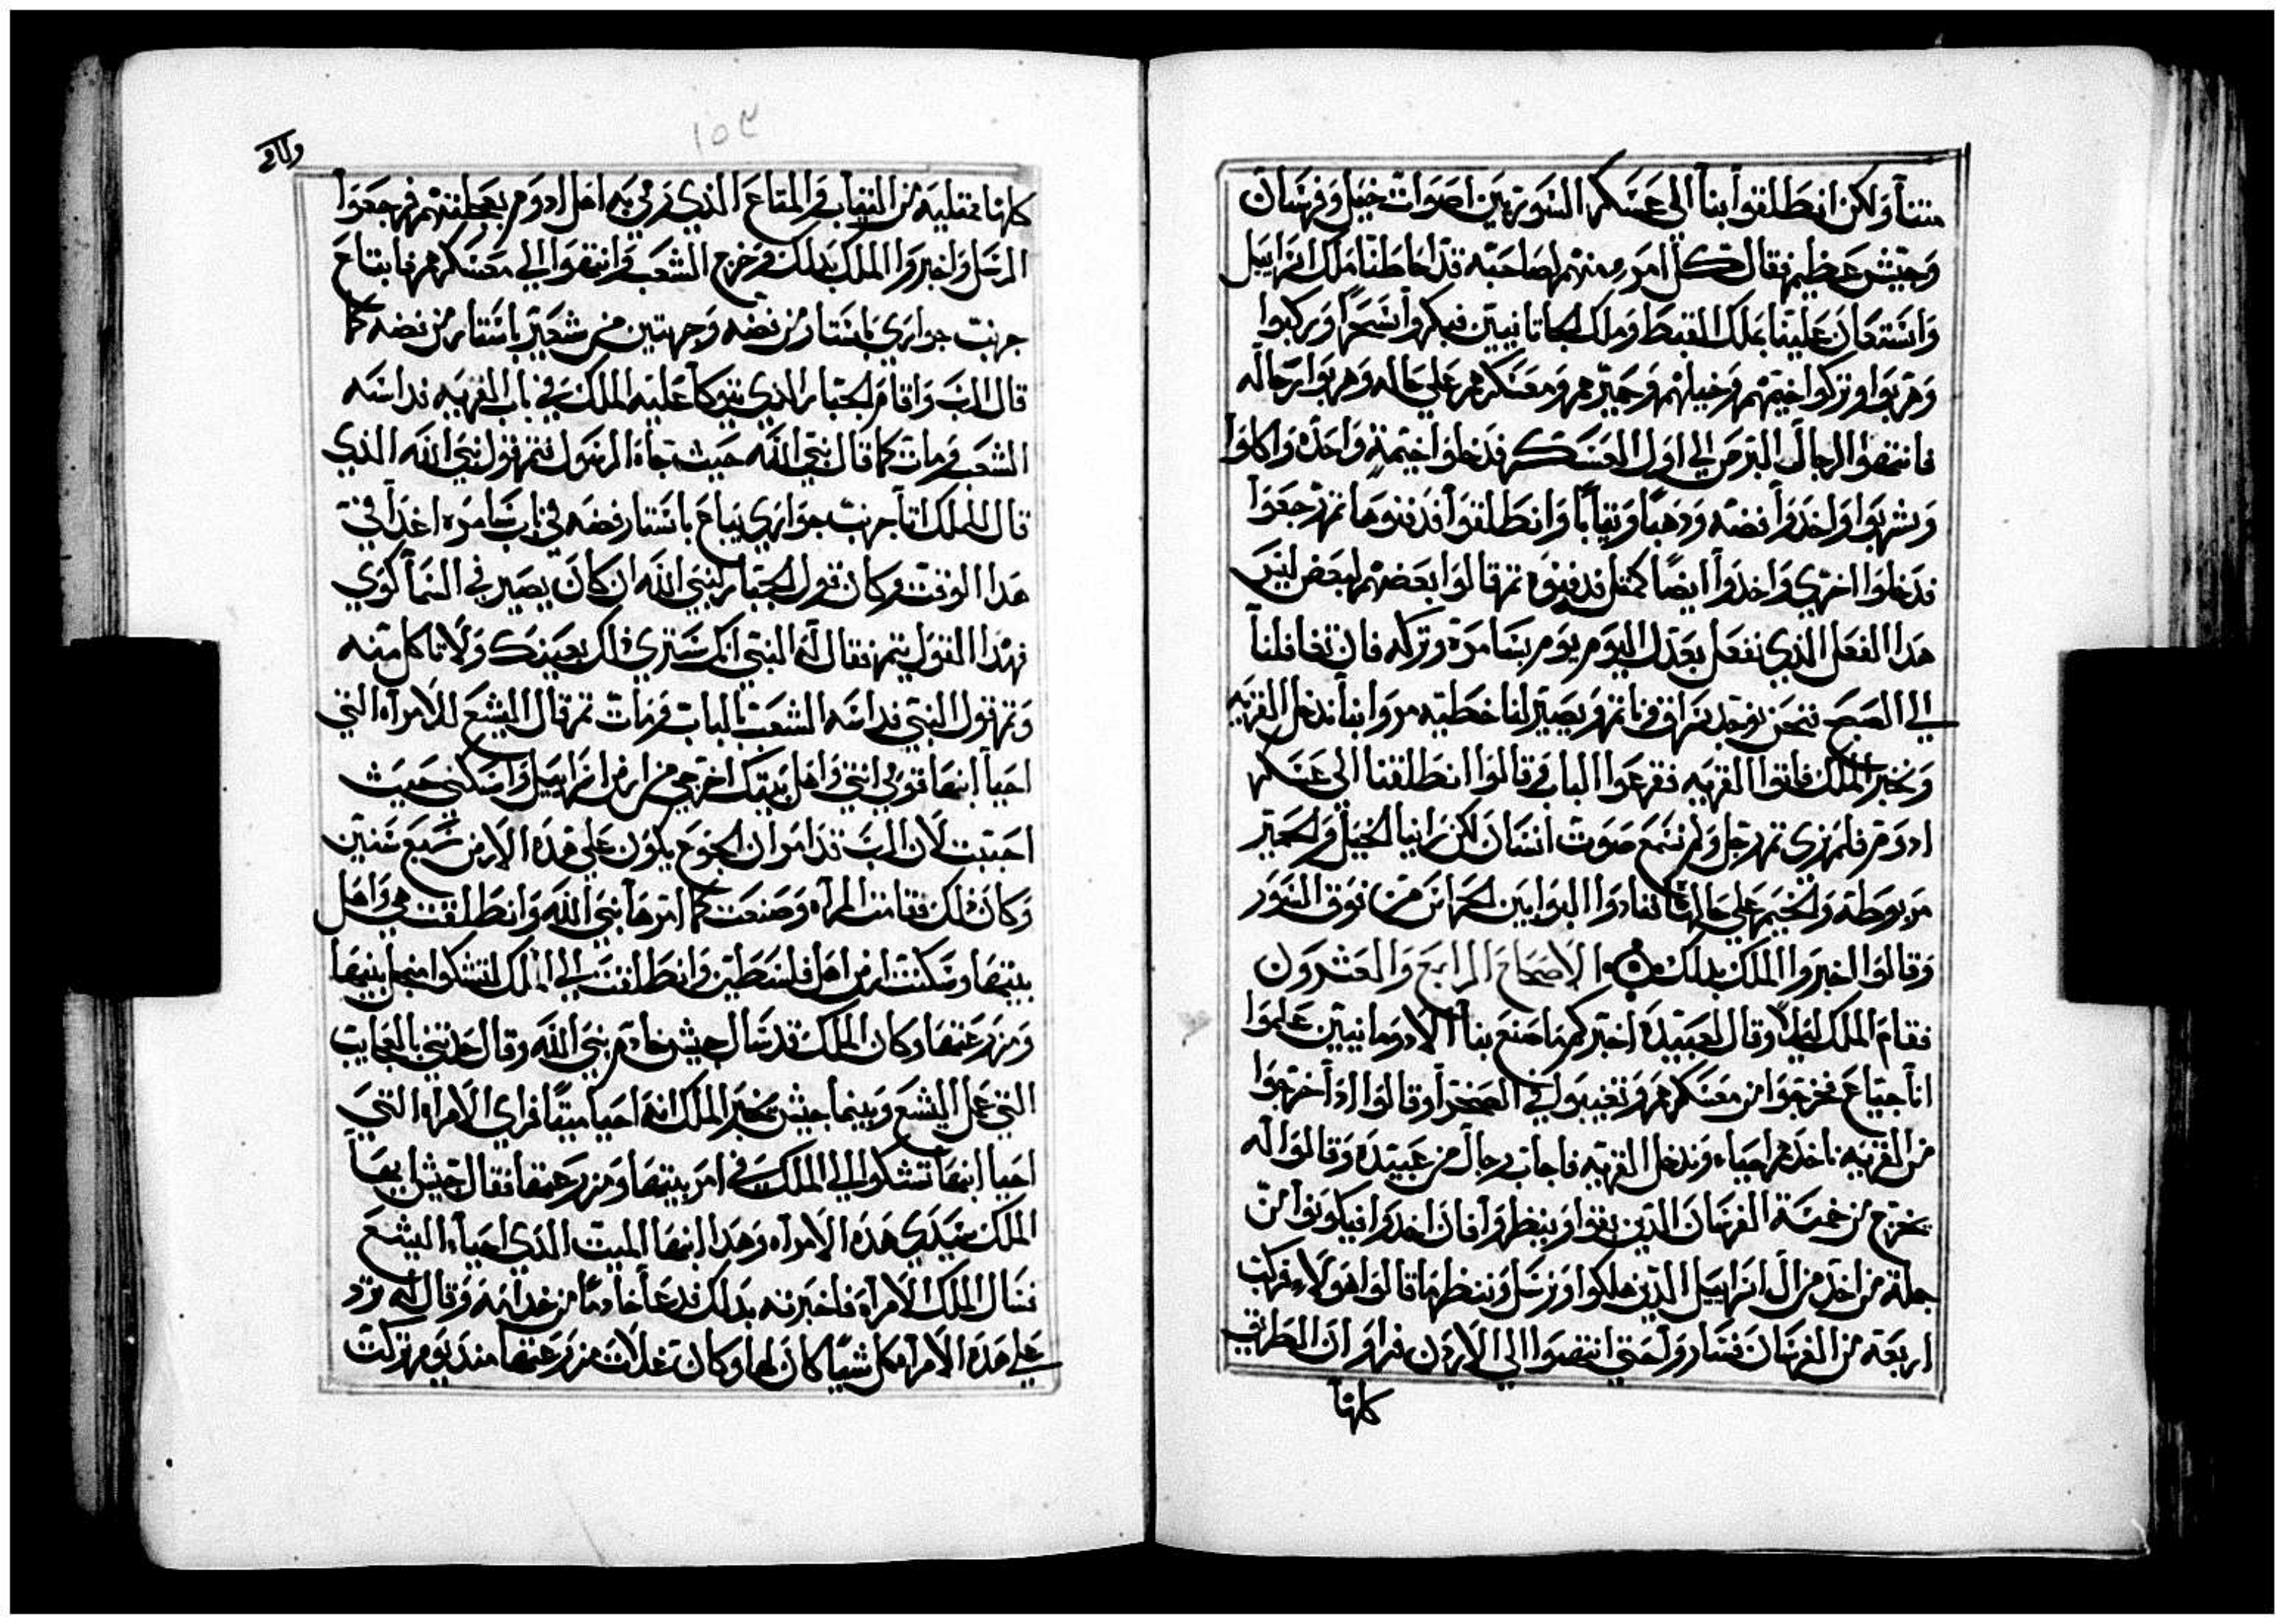 متنا ولكن انطلقوا بنا الى عسكر السوريين اصوات خيل وفرسان
وجيش عظيم فقال كل امرء منهم لصاحبه قد احاطنا ملك اسراييل
واستعان علينا بملك القبط وملك الجاتانيين فبكروا سحرا وركبوا
وهربوا وتركوا خيمهم وخيلهم وحميرهم ومعسكرهم على حاله وهربوا رجاله
فانتهوا الرجال البرص الى اول العسكر فدخلوا خيمة واحده واكلوا
وشربوا واخدوا فضه ودهبا وتيابا وانطلقوا فدفنوها تم رجعوا
فدخلوا اخري واخدوا ايضا كمتل فدفنوه تم قالوا بعضهم لبعض ليس
هدا الفعل الذي نفعل بعدل اليوم يوم بشامرة وتركه فان تغافلنا
الي الصبح فنحن نوجد تم ويصير لنا خطيه مروا بنا ندخل القريه
ونخبر الملك فاتوا القريه فقرعوا الباب وقالوا انطلقنا الى عسكر
ادوم فلم نري تم رجل ولم نسمع صوت انسان لكن راينا الخيل والحمير
مربوطة والخيم على حالها فنادوا البوابين الحراس من فوق السور
وقالوا اخبروا الملك بدلك الاصحاح الرابع والعشرون
فقام الملك ليلا وقال لعبيده اخبركم ما صنع بنا الادومانيين علموا
انا جياع فخرجوا من معسكرهم وتغيبوا في الصحرا وقالوا ادا خرجوا
من القريه ناخدهم احياء وندخل القريه فاجاب رجال من عبيده وقالوا له
يخرج من خمسة الفرسان الدين بقوا وينظروا فان اخدوا فيكونوا من
جملة من اخد من ال اسراييل الدين هلكوا ونرسل وننظر ما قالوا هولاء فركب
اربعة من الفرسان فساروا حتي انتهوا الي الاردن فراوا ان الطريق
كلها
١٥٣
كلها ممتليه من التياب والمتاع الذي رمي به اهل ادوم بعجلتهم فرجعوا
الرسل واخبروا الملك بدلك فخرج الشعب وانتهوا الي معسكرهم فابتاع
جريب حواري باستار من فضه وجريبين من شعير باستار من فضه كما
قال الرب واقام الجبار الذي يتوكا عليه الملك في باب القريه فداسه
الشعب ومات كما قال نبي الله حيث جاه الرسول فتم قول نبي الله الذي
قال للملك ان جريب حواري يباع باستار فضه في باب شامره اغدا في
هدا الوقت وكان قول الجبار لنبي الله ان كان يصير في السما كوي
فهدا القول يتم فقال له النبي انك ستري ذلك بعينك ولا تاكل منه
وتم قول النبي فداسه الشعب بالباب ومات تم قال اليشع للامراه التي
احيا ابنها قومي انتي واهل بيتك اخرجي من ارض اسراييل واسكني حيث
احببت لان الرب قد امر ان الجوع يكون على هده الارض سبع سنين
وكان ذلك فقامت المراه وصنعت كما امرها نبي الله وانطلقت هي واهل
بيتها وسكنت ارض اهل فلسطين وانطلقت الي الملك لتشكوا من اجل بيتها
ومزرعتها وكان الملك قد سال جيش خادم نبي الله وقال حدثني بالعجايب
التي عمل اليشع وبينما جيش يخبر الملك انه احيا ميتا فراي الامراه التي
احيا ابنها تشكوا الي الملك في امر بيتها ومزرعتها فقال جيش ايها
الملك سيدي هده الامراه وهدا ابنها الميت الذي احياه اليشع
فسال الملك الامراه فاخبرته بدلك فدعا خادما من خدامه وقال له ترد
على هده الامراه كل شيا كان لها وكان تغلات مزرعتها مند يوم تركت